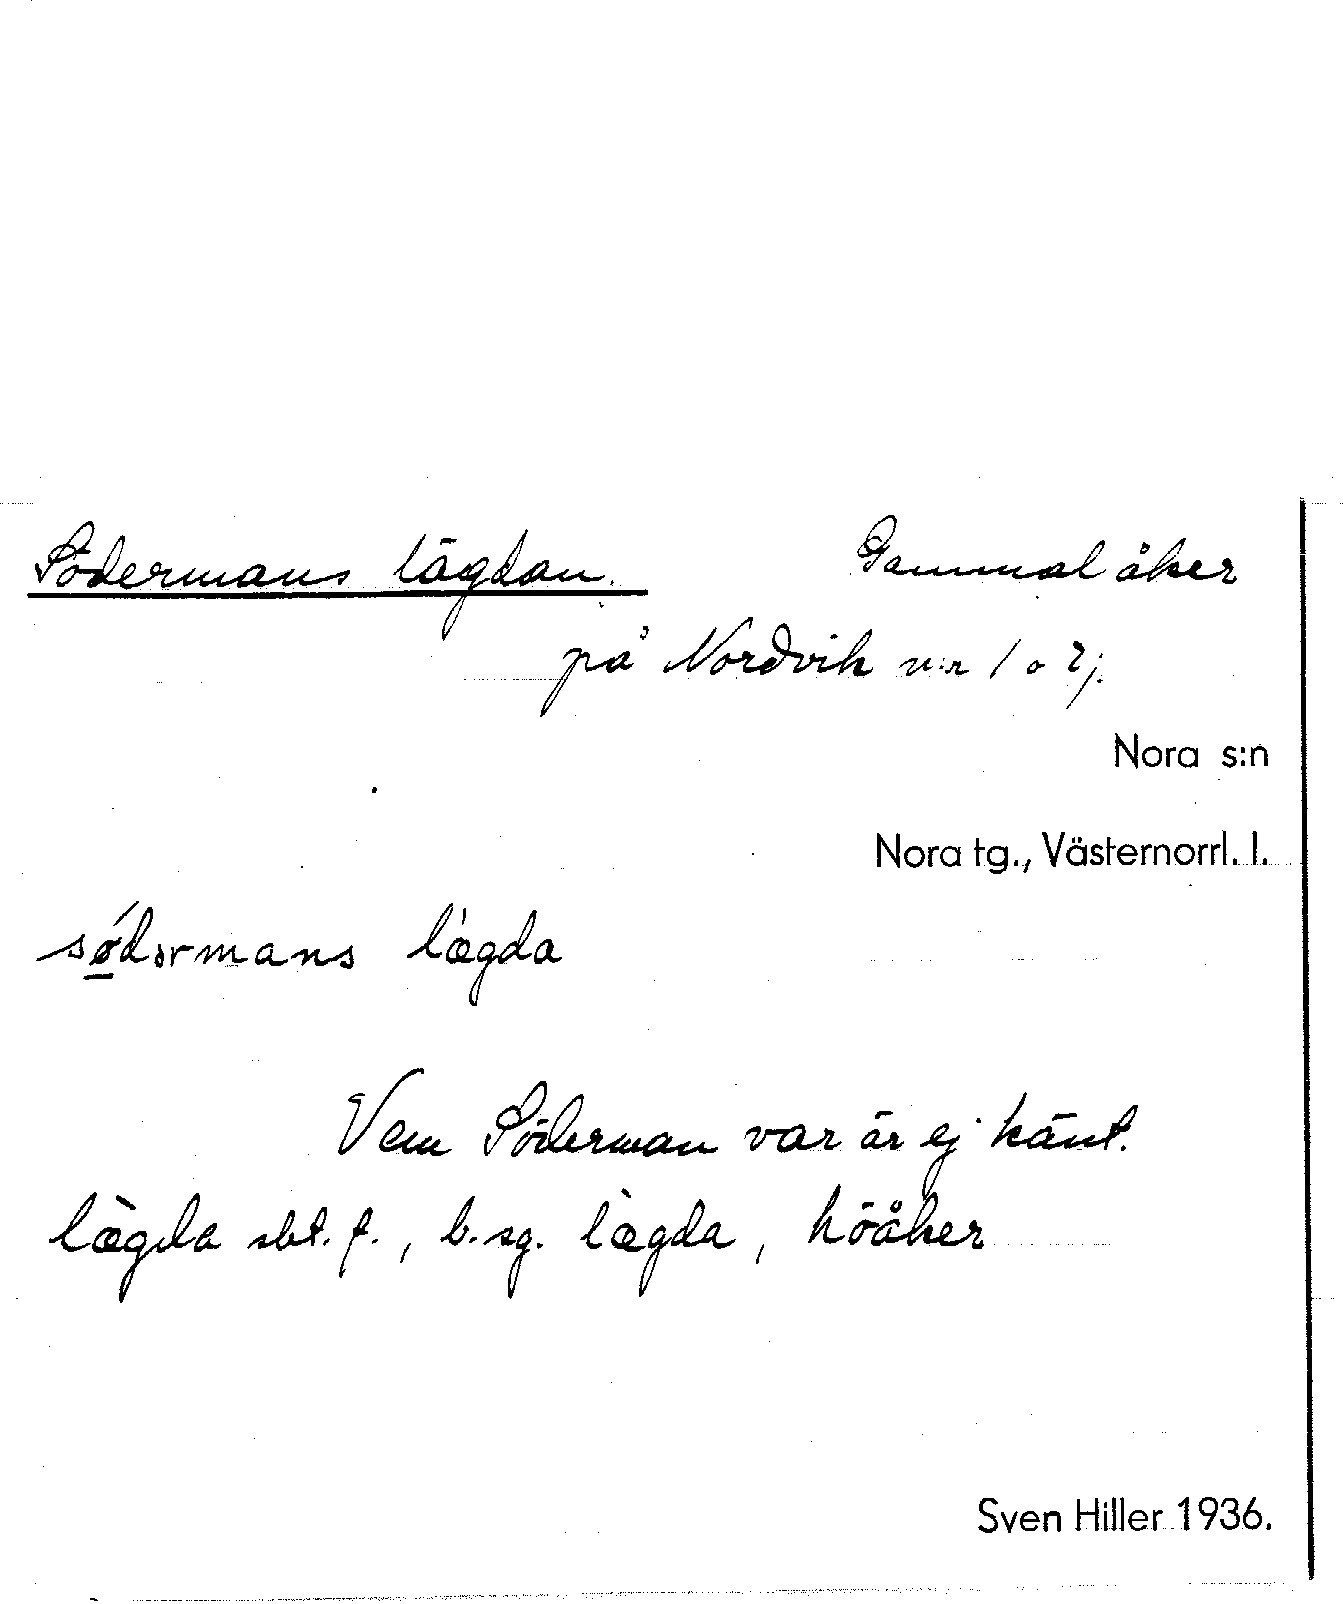 Södermans lägdan. Gammal åker
på Nordvik n:r 1 o 2j.
Nora s:n
Nora tg., Västernorrl. l.
sǿdərmans lægda
Vem Söderman var är ej känt.
lægda sbt. f., b. sg. lægda, höåker
Sven Hiller 1936.